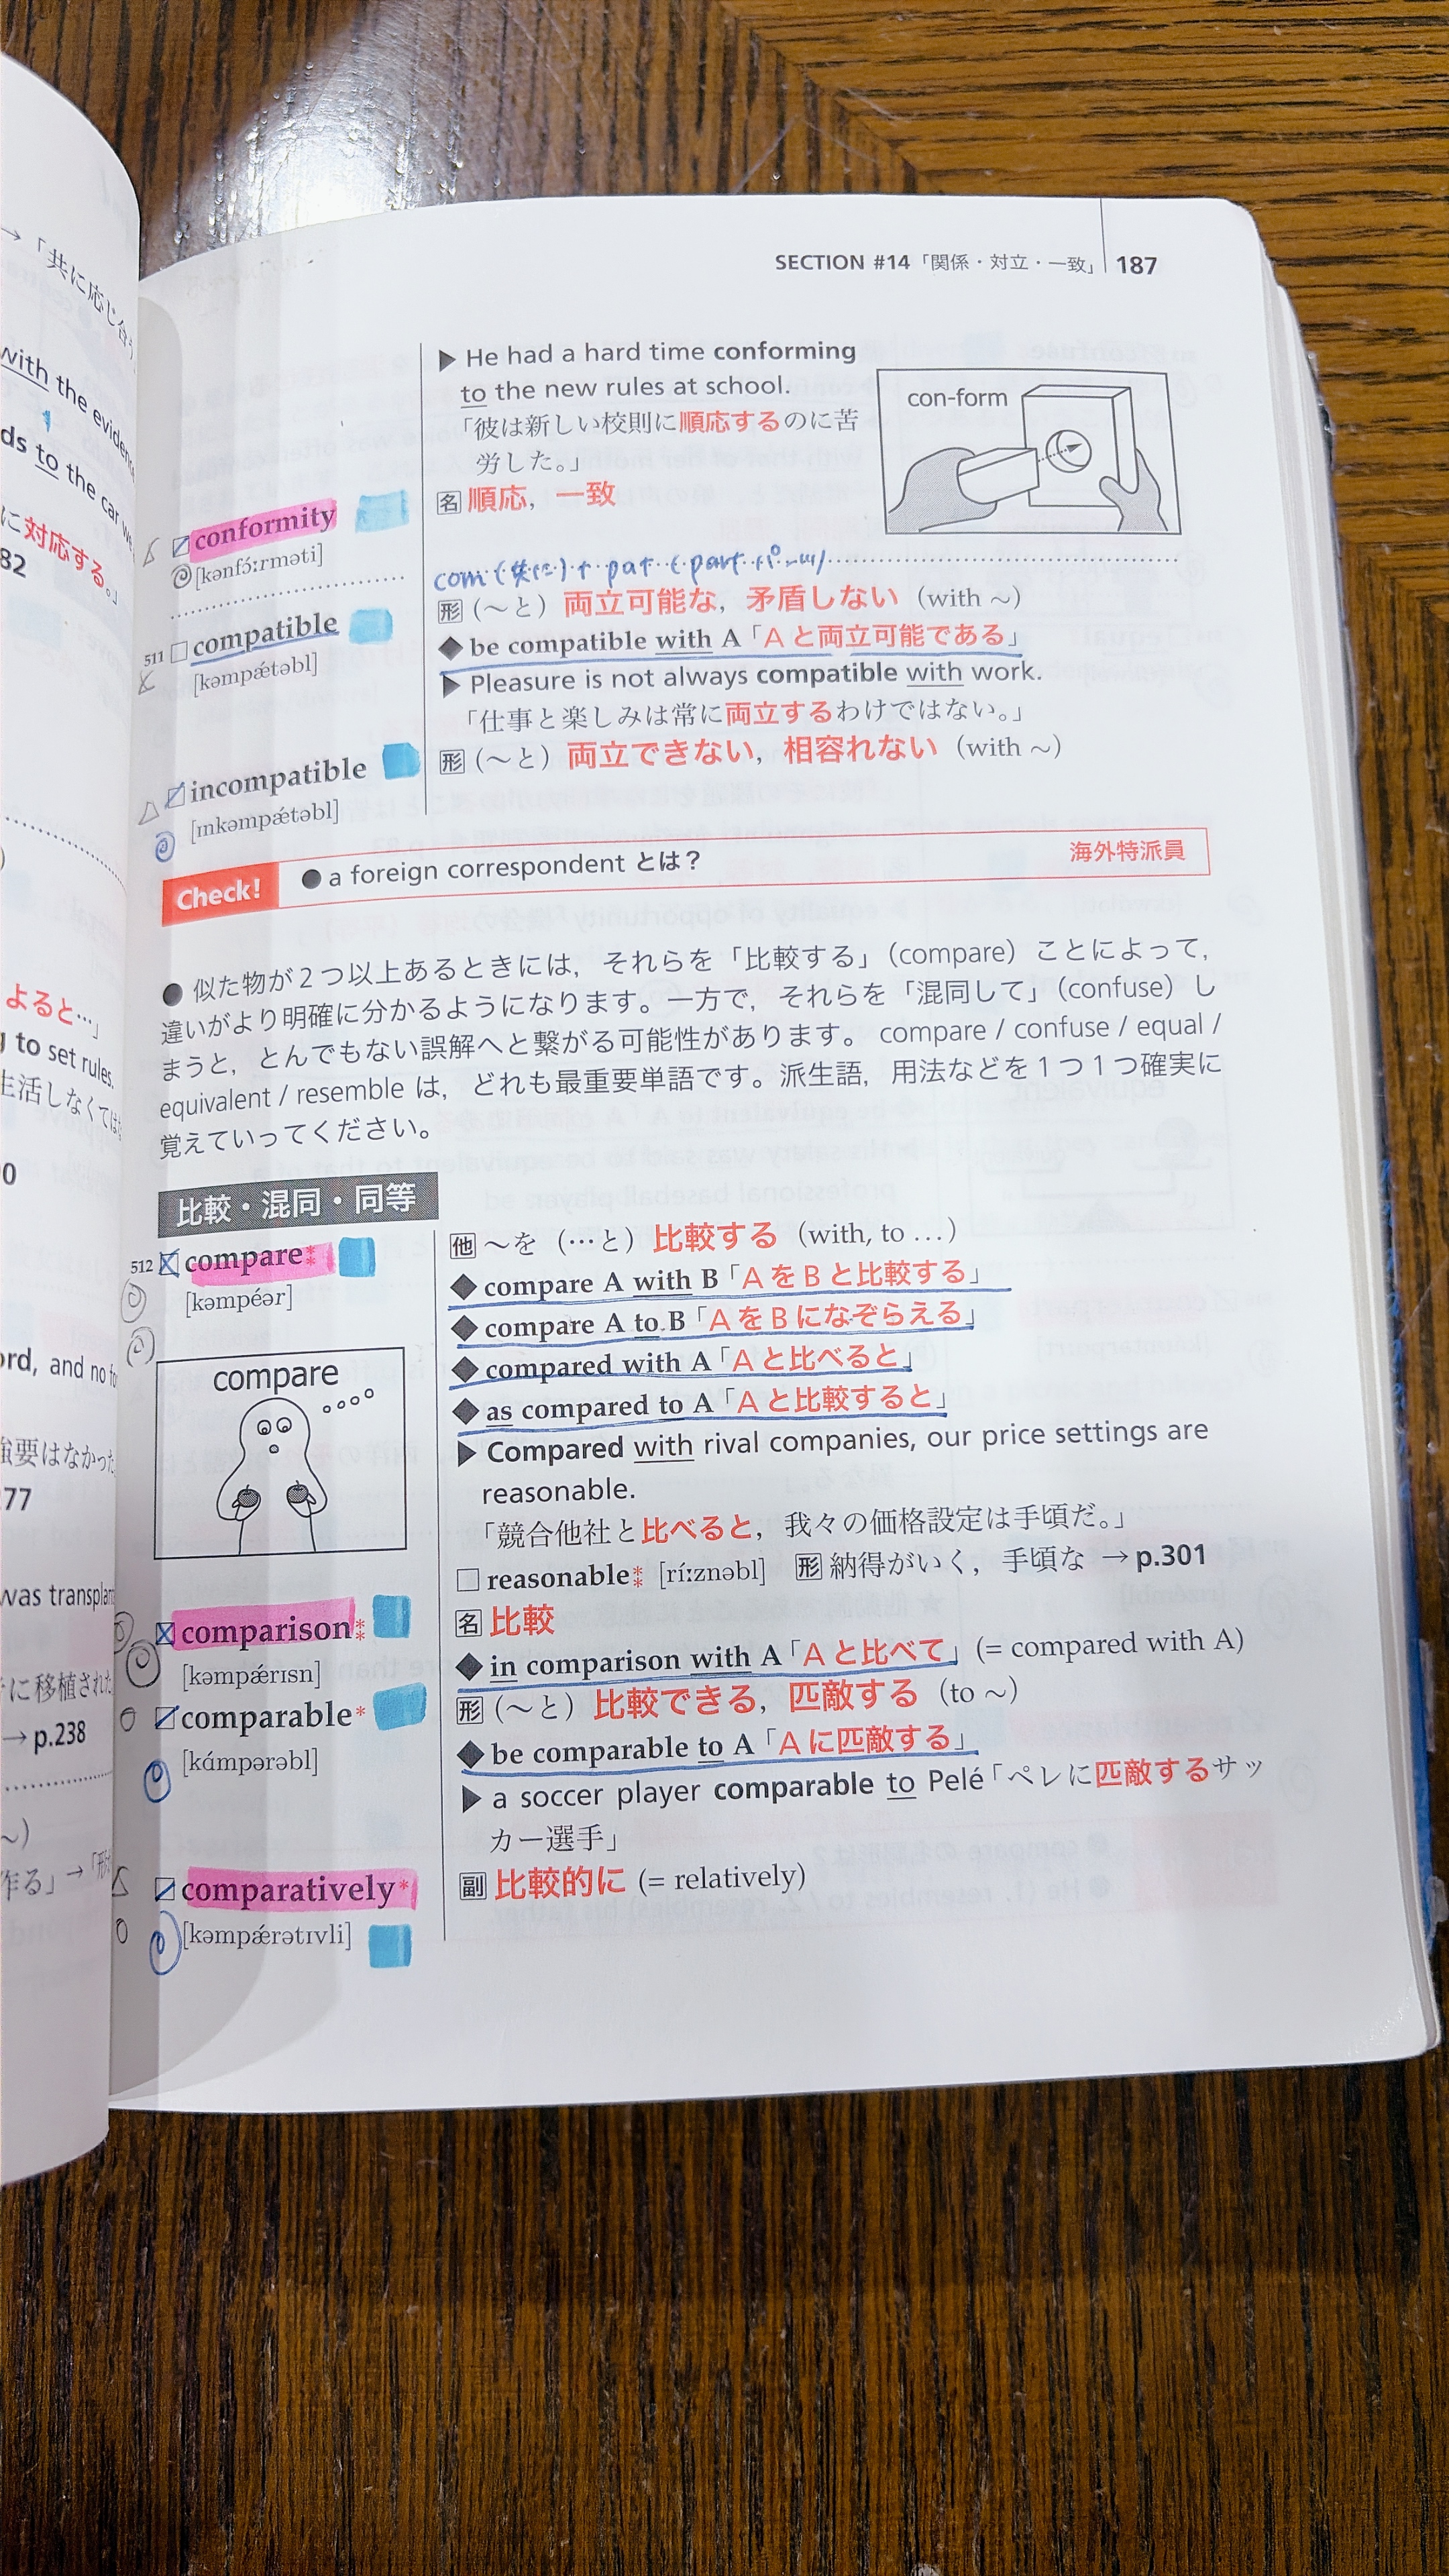 →「共に応じ合う
with the evidenc
ds to the car w
に対応する。」
82
よると…」
g to set rules.
生活しなくては
ord, and no
強要はなかった
177
was transplan
に移植された
→ p.238
〜)
作る」→「形
SECTION #14「関係・対立・一致」 187
▶ He had a hard time conforming
to the new rules at school.
「彼は新しい校則に順応するのに苦
労した。」
con-form
conformity
[kənfɔ́ːrməti]
名 順応，一致
com (共に) + pat (part
511 compatible
[kəmpǽtəbl]
形 (〜と) 両立可能な，矛盾しない (with 〜)
◆ be compatible with A「Aと両立可能である」
▶ Pleasure is not always compatible with work.
「仕事と楽しみは常に両立するわけではない。」
incompatible
[ɪnkəmpǽtəbl]
形 (〜と) 両立できない，相容れない (with 〜)
Check! ● a foreign correspondent とは？ 海外特派員
● 似た物が２つ以上あるときには，それらを「比較する」(compare) ことによって，
違いがより明確に分かるようになります。一方で，それらを「混同して」(confuse) し
まうと，とんでもない誤解へと繋がる可能性があります。 compare / confuse / equal /
equivalent / resemble は，どれも最重要単語です。派生語，用法などを１つ１つ確実に
覚えていってください。
比較・混同・同等
512 compare⁑
[kəmpéər]
他 〜を (…と) 比較する (with, to …)
◆ compare A with B「AをBと比較する」
◆ compare A to B「AをBになぞらえる」
◆ compared with A「Aと比べると」
◆ as compared to A「Aと比較すると」
compare
▶ Compared with rival companies, our price settings are
reasonable.
「競合他社と比べると，我々の価格設定は手頃だ。」
□ reasonable⁑ [ríːznəbl] 形 納得がいく，手頃な → p.301
comparison⁑
[kəmpǽrɪsn]
名 比較
◆ in comparison with A「Aと比べて」(= compared with A)
comparable*
[kɑ́mpərəbl]
形 (〜と) 比較できる，匹敵する (to 〜)
◆ be comparable to A「Aに匹敵する」
▶ a soccer player comparable to Pelé「ペレに匹敵するサッ
カー選手」
comparatively*
[kəmpǽrətɪvli]
副 比較的に (= relatively)